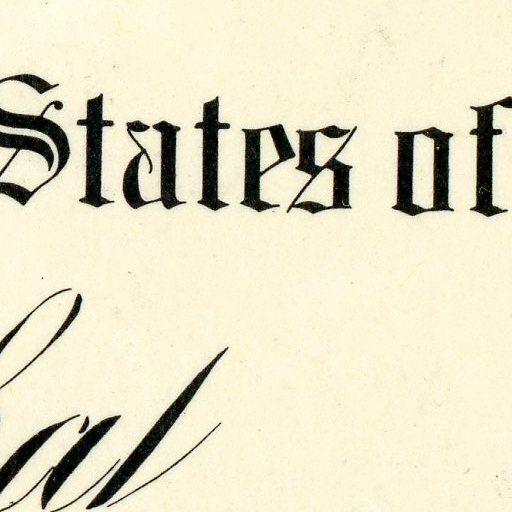 States of